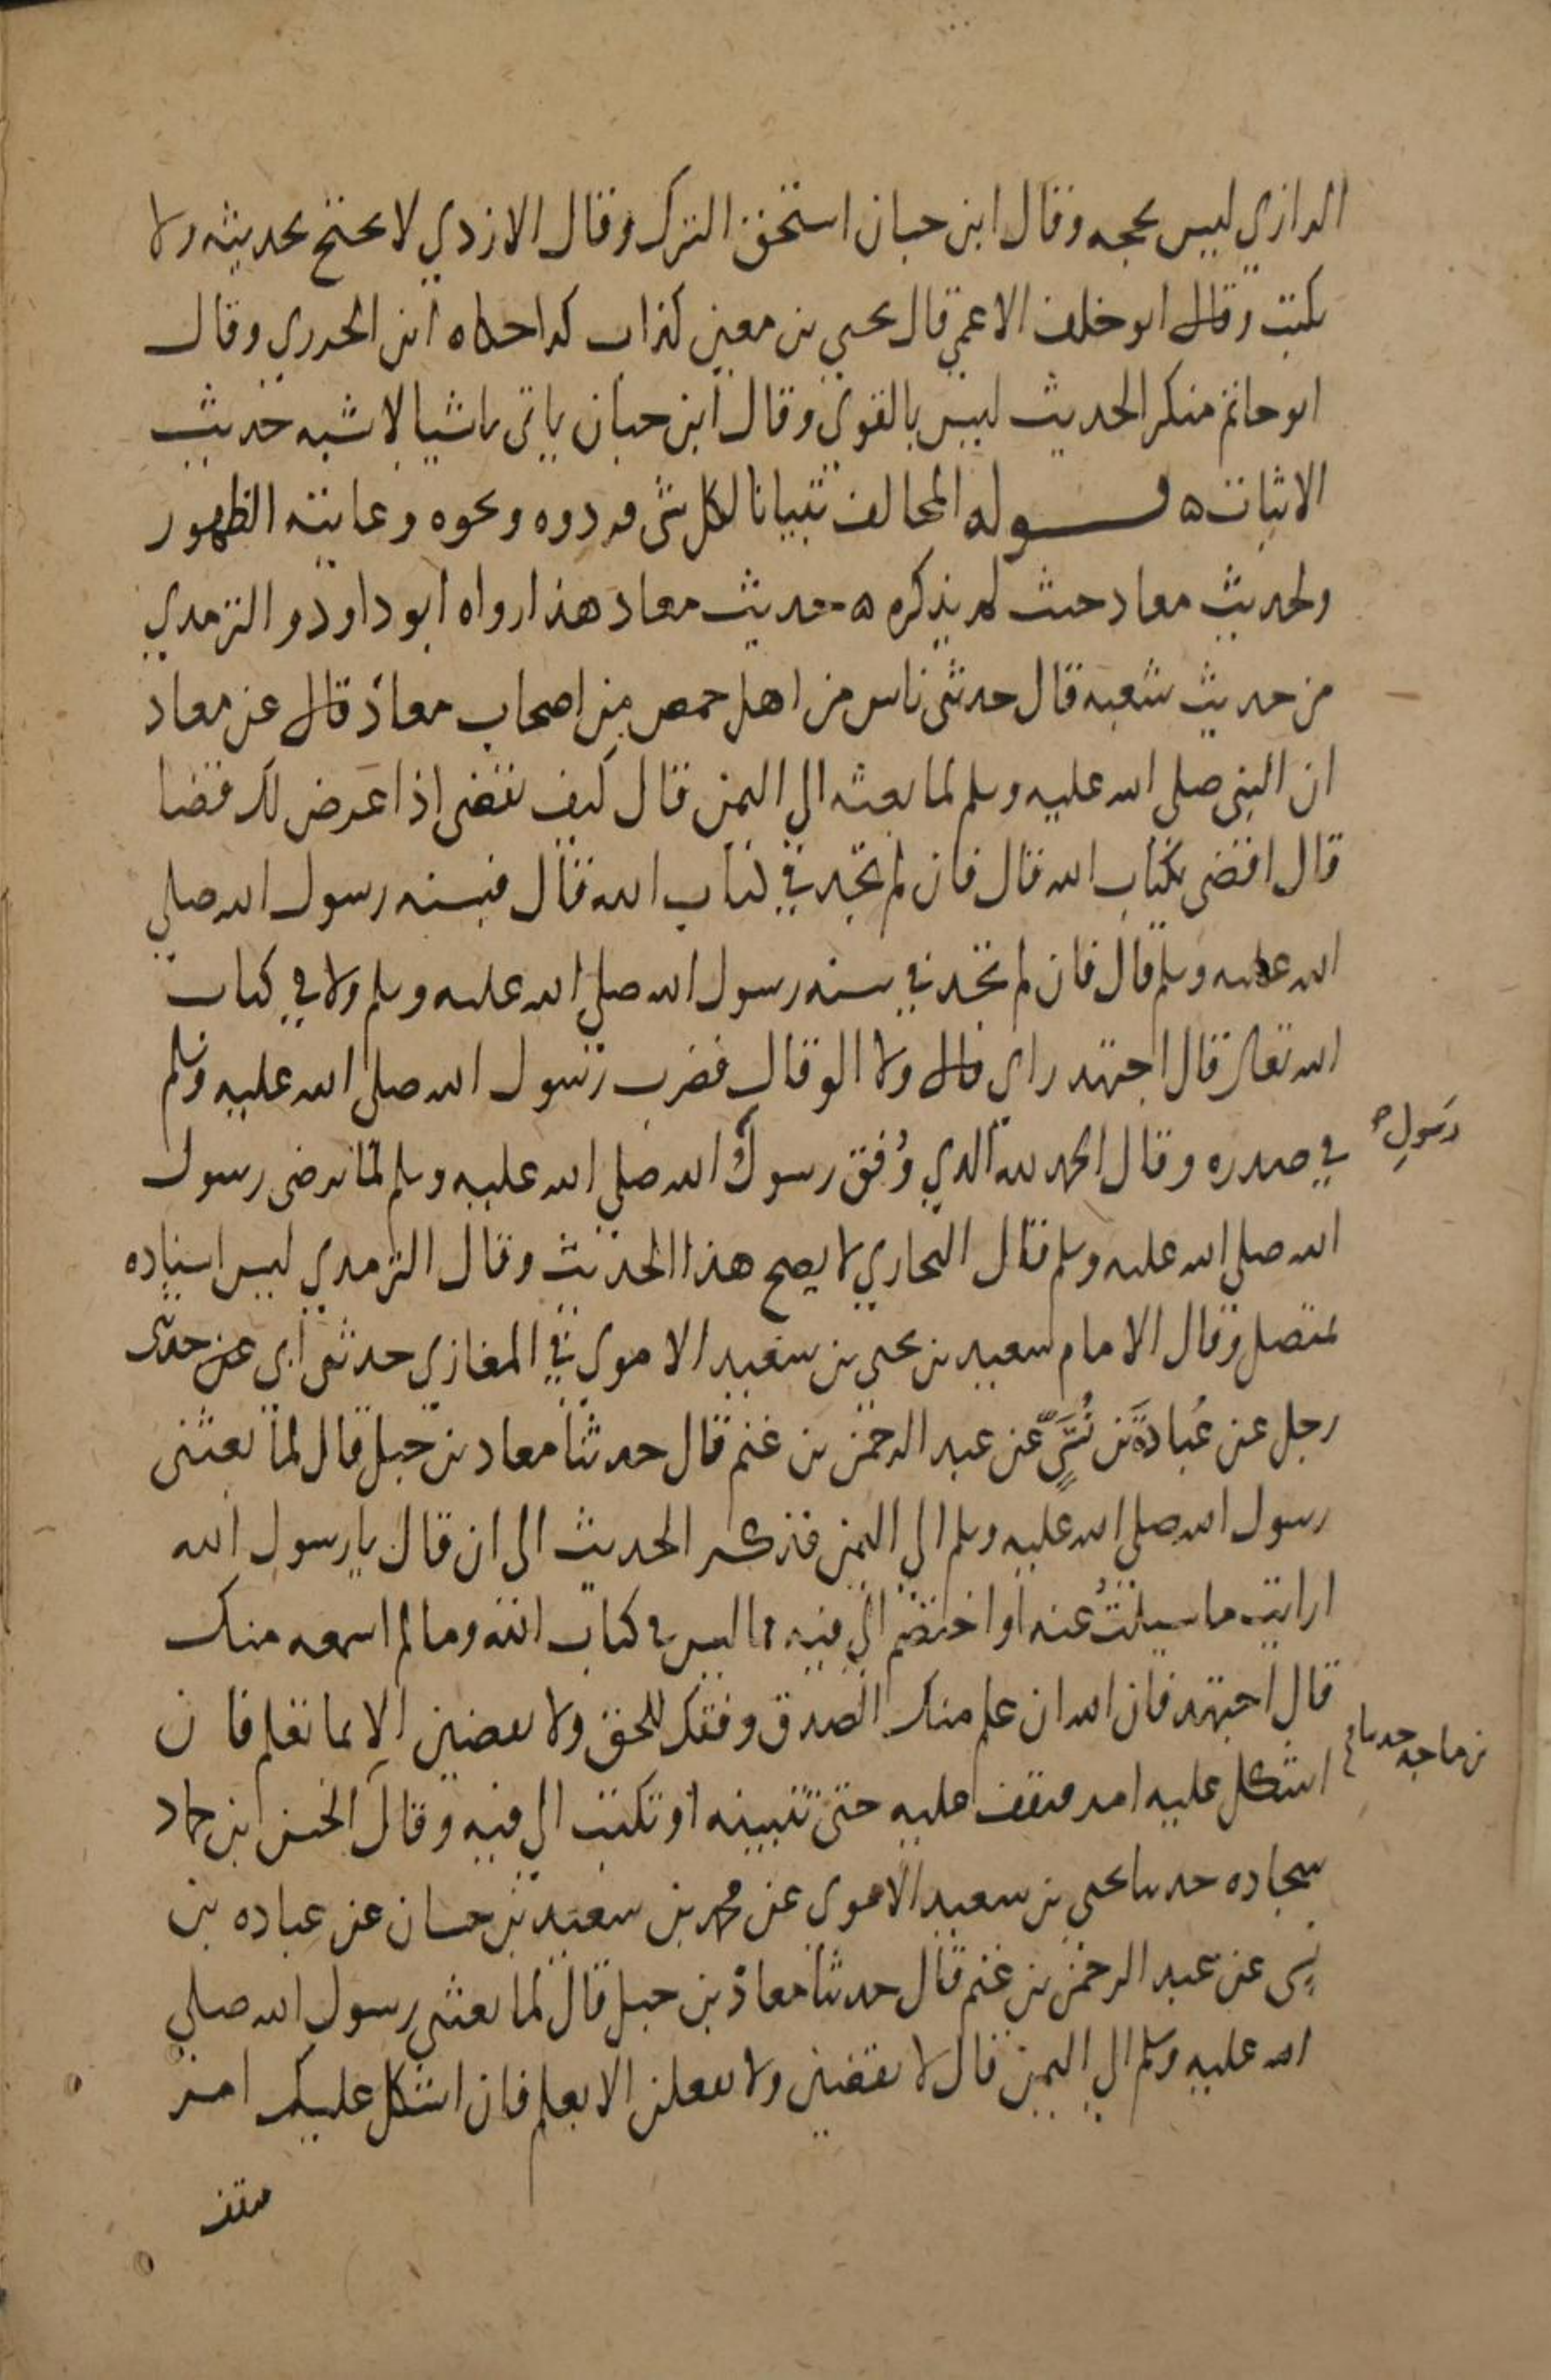 الرازي ليس بحجه وقال ابن حبان استحق الترك وقال الازدي لا يحتج بحديثه ولا
يكتب وقال ابو خلف الاعمي قال يحيي بن معين كذاب كذا حكاه ابن الجوزي وقال
ابو حاتم منكر الحديث ليس بالقوي وقال ابن حبان ياتي باشيا لا تشبه حديث
الاثبات ه قوله المخالف تبيانا لكل شي فردوه ونحوه وغايته الظهور
ولحديث معاد حيث لم يذكره ه حديث معاد هذا رواه ابو داود والترمدي
من حديث شعبه قال حدثني ناس من اهل حمص من اصحاب معاذ قال عن معاد
ان النبي صلي الله عليه وسلم لما بعثه الي اليمن قال كيف تقضي اذا عرض لك قضا
قال اقضي بكتاب الله قال فان لم تجد في كتاب الله قال فبسنه رسول الله صلي
الله عليه وسلم قال فان لم تجد في سنه رسول الله صلي الله عليه وسلم ولا في كتاب
الله تعالى قال اجتهد راي قال ولا الو قال فضرب رسول الله صلي الله عليه وسلم
في صدره وقال الحمد لله الدي وُفق رسول الله صلي الله عليه وسلم لما يرضي رسول
رَسولِ
الله صلي الله عليه وسلم قال البخاري لا يصح هذا الحديث وقال الترمدي ليس اسناده
بمتصل وقال الامام سعيد بن يحيي بن سعيد الاموي في المغازي حدثني ابي عن حدثني
رجل عن عُبادَة بن نُسَيٍّ عن عبد الرحمن بن غنم قال حدثنا معاد بن جبل قال لما بعثني
رسول الله صلي الله عليه وسلم الي اليمن فذكر الحديث الي ان قال يا رسول الله
ارايت ما سيلتُ عنه او اختصم الي فيه مما ليس في كتاب الله وما لم اسمعه منك
قال اجتهد فان الله ان علم منك الصدق وفقك للحق ولا تقضين الا بما تعلم فان
اشكل عليه امر فقف عليه حتي تتبينه او تكتب الي فيه وقال الحسن ابن حماد
بن ماجه حدثنا
سجاده حدثنا يحيي بن سعيد الاموي عن محمد بن سعيد بن حسان عن عباده بن
نسي عن عبد الرحمن بن غنم قال حدثنا معاذ بن جبل قال لما بعثني رسول الله صلي
الله عليه وسلم الي اليمن قال لا تقضين ولا تفصلن الا بعلم فان اشكل عليك امر
فقف